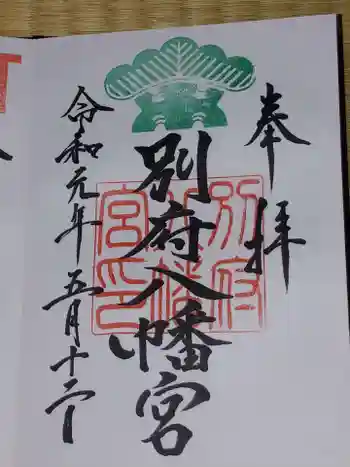 奉拝
別府八幡宮
別府八幡宮印
令和元年五月十二日